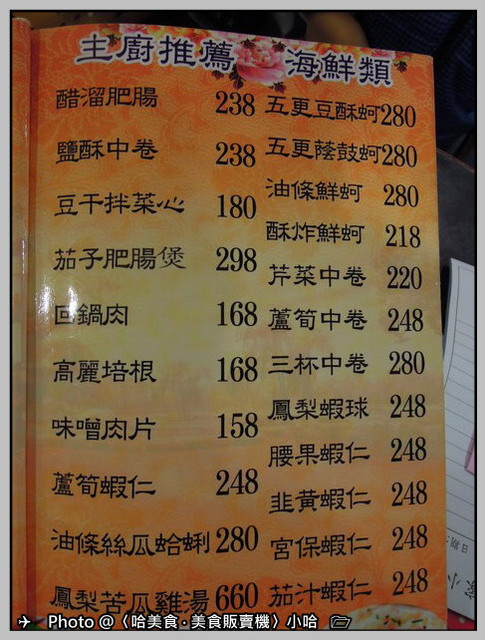 主廚推薦
醋溜肥腸 238
鹽酥中卷 238
豆干拌菜心 180
茄子肥腸煲 298
回鍋肉 168
高麗培根 168
味噌肉片 158
蘆筍蝦仁 248
油條絲瓜蛤蜊 280
鳳梨苦瓜雞湯 660
海鮮類
五更豆酥蚵 280
五更蔭鼓蚵 280
油條鮮蚵 280
酥炸鮮蚵 218
芹菜中卷 220
蘆筍中卷 248
三杯中卷 280
鳳梨蝦球 248
腰果蝦仁 248
韭黃蝦仁 248
宮保蝦仁 248
茄汁蝦仁 248
日期
家 小
Photo @〈哈美食·美食販賣機〉小哈